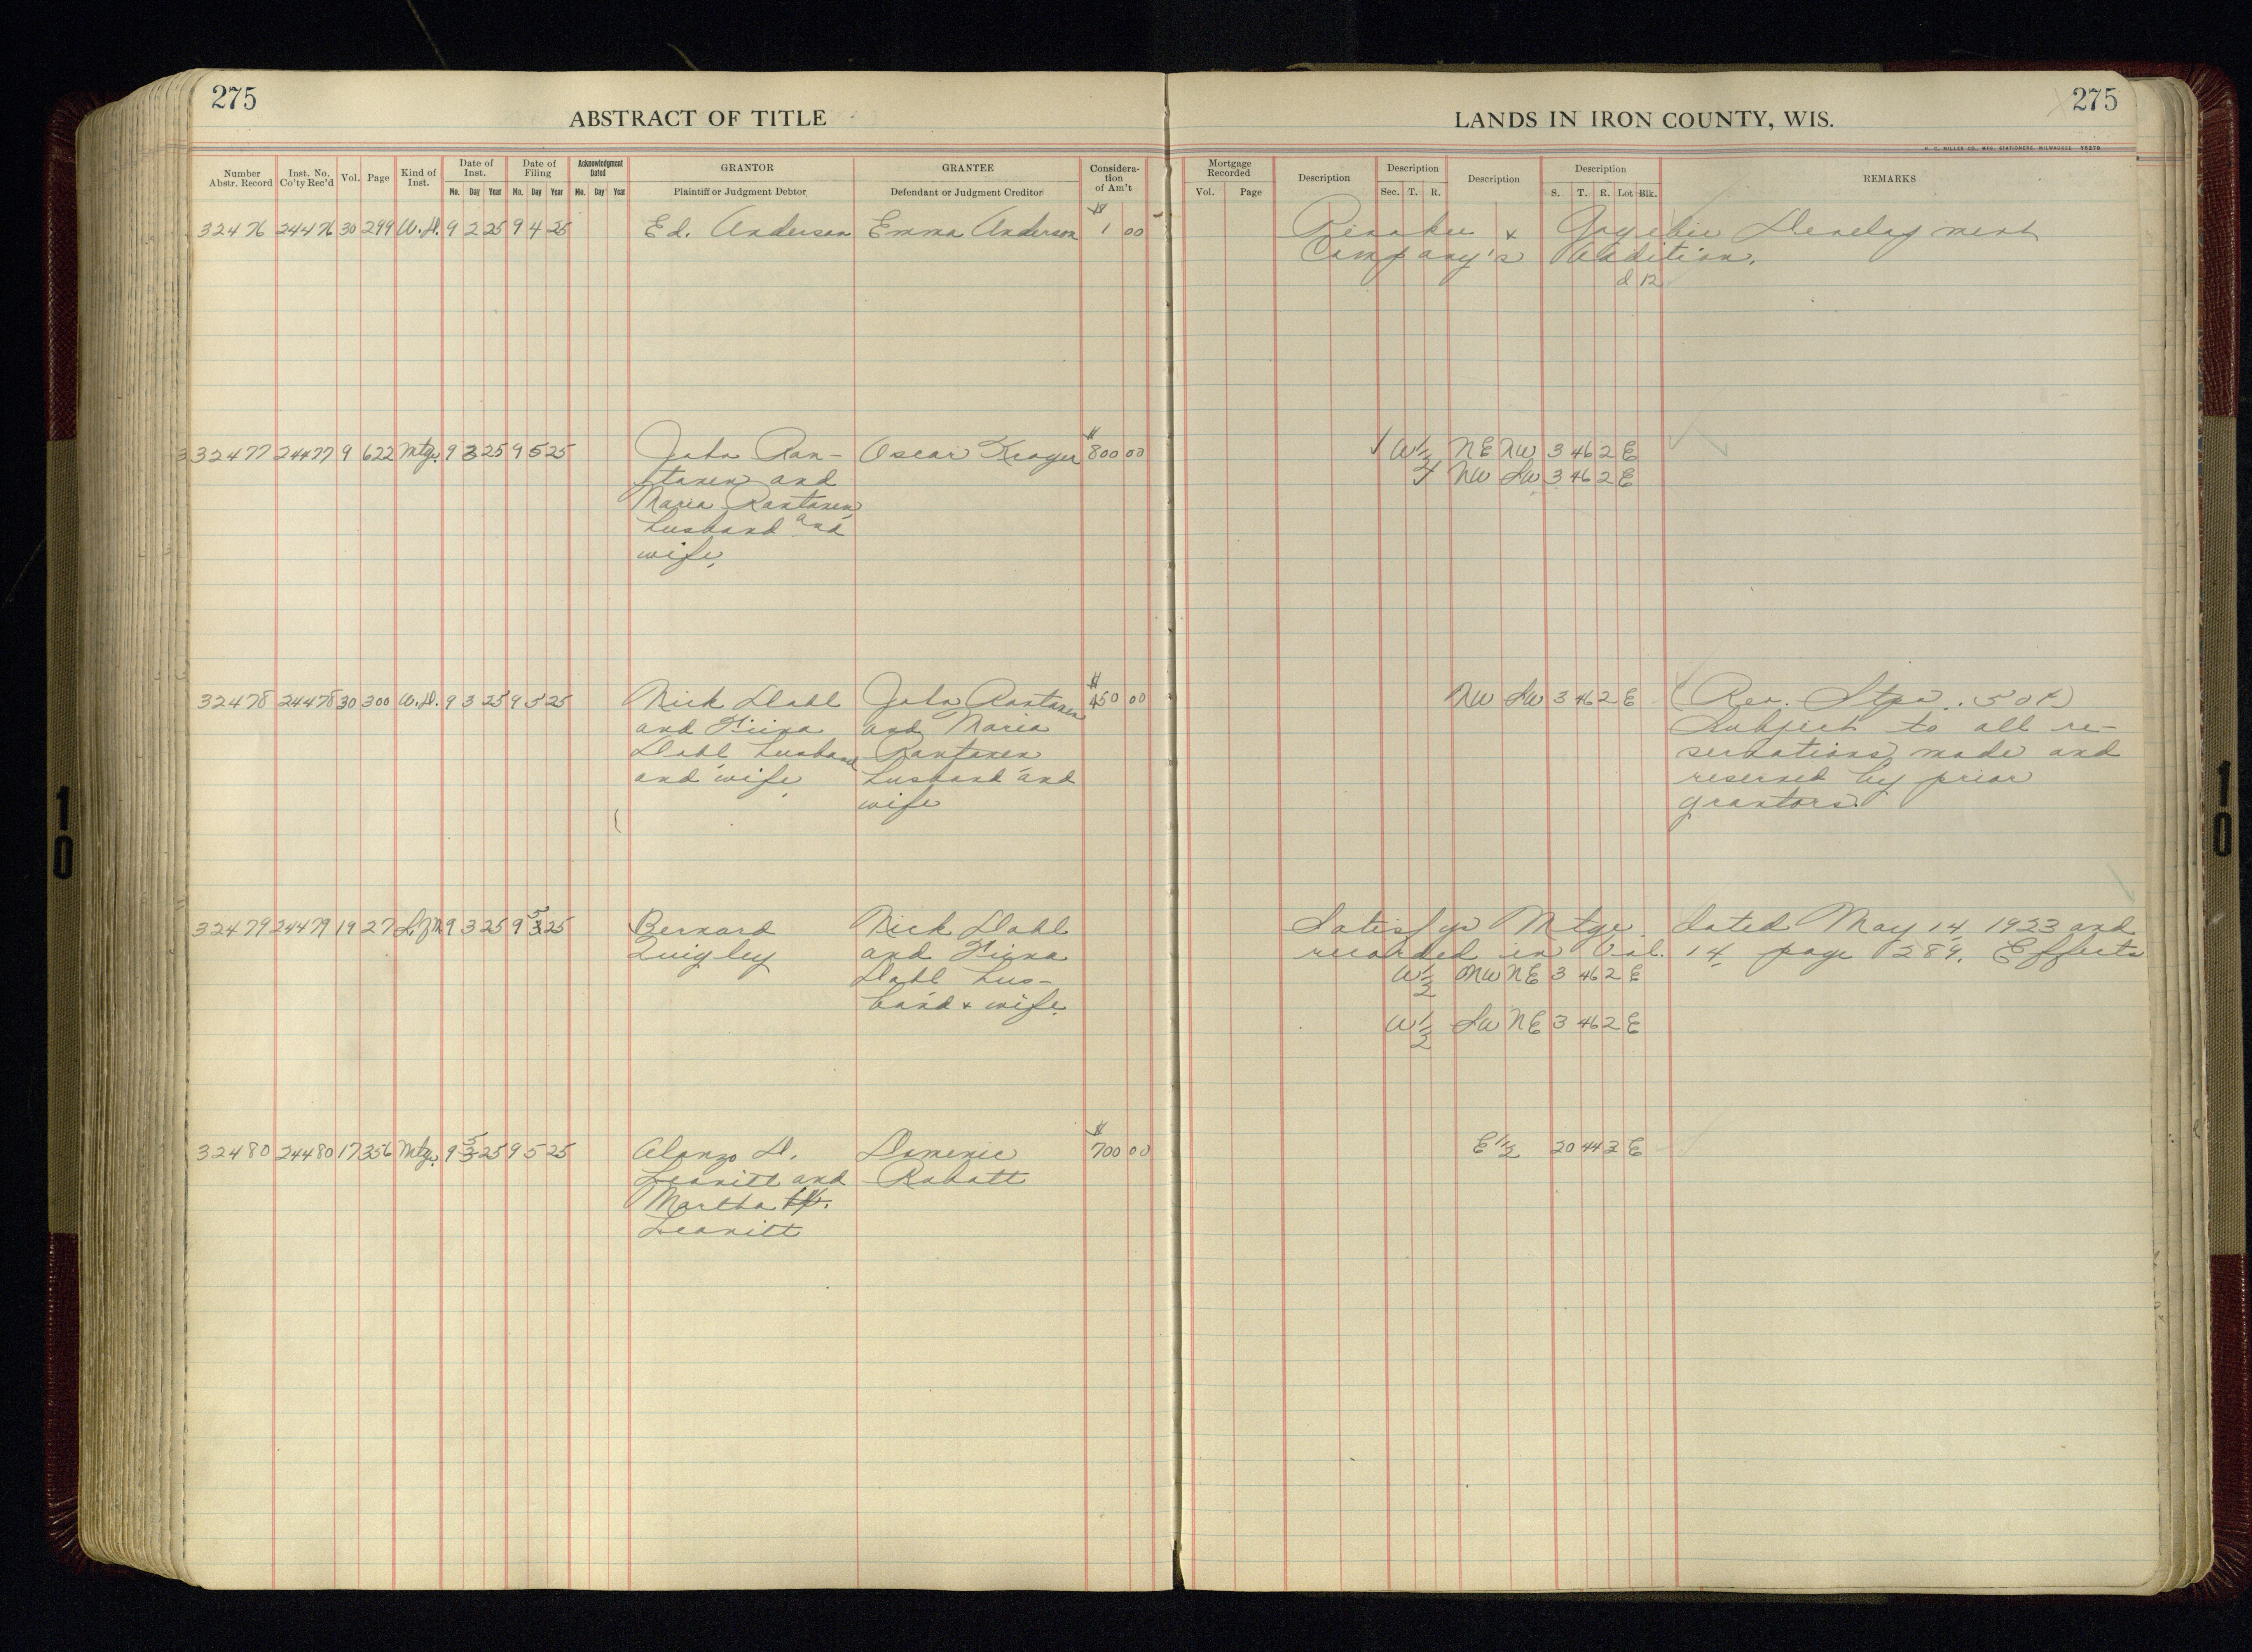 275
ABSTRACT OF TITLE
LANDS IN IRON COUNTY, WIS.
275
H. C. MILLER CO., MFG. STATIONERS, MILWAUKEE 75270
Number Abstr. Record | Inst. No. Co'ty Rec'd | Vol. | Page | Kind of Inst. | Date of Inst. Mo. Day Year | Date of Filing Mo. Day Year | Acknowledgment Dated Mo. Day Year | GRANTOR Plaintiff or Judgment Debtor | GRANTEE Defendant or Judgment Creditor | Consideration of Am't | Mortgage Recorded Vol. Page | Description | Description Sec. T. R. | Description | Description S. T. R. Lot Blk. | REMARKS
32476 24476 30 299 W.D. 9 2 25 9 4 25 Ed. Anderson Emma Anderson $1 00 & Gogebic Development
Company's Addition.
d 12
32477 24477 9 622 Mtg. 9 3 25 9 5 25 John Ran- Oscar Kroger $800 00 W½ NE NW 3 46 2 E
tanen and NW SW 3 46 2 E
Maria Rantanen
husband and
wife.
32478 24478 30 300 W.D. 9 3 25 9 5 25 Nick Dahl John Rantanen $450 00 NW SW 3 46 2 E (Rev. Stps. .50¢)
and Hiina and Maria Subject to all re-
Dahl, husband Rantanen servations made and
and wife. husband and reserved by prior
wife grantors.
32479 24479 19 27 9 3 25 9 5 25 Bernard Nick Dahl Satisfys Mtge. dated May 14, 1923 and
Quigley and Hiina recorded in Vol. 14 page 289. Effects
Dahl hus- W½ NW NE 3 46 2 E
band & wife.
W½ SW NE 3 46 2 E
32480 24480 17 356 Mtg. 9 5 25 9 5 25 Alonzo D. Domenic $700 00 E½ 20 44 3 E
Leavitt and Rabatt
Martha
Leavitt